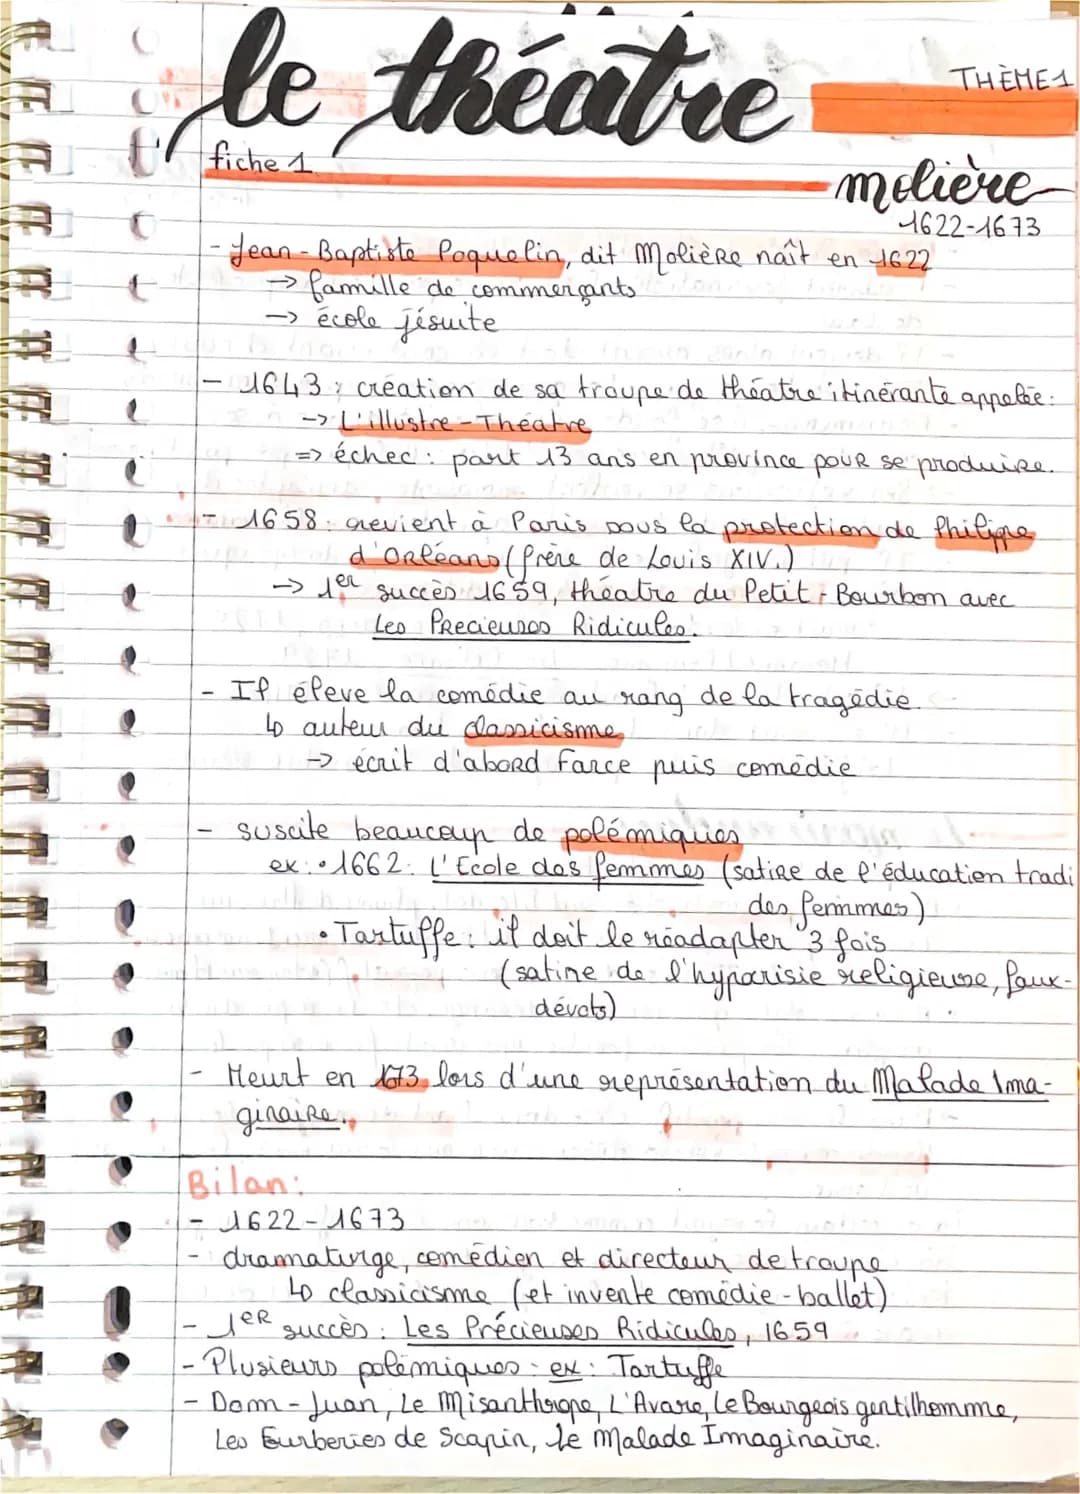 le théatre
THÈME 1
fiche 1
molière
1622-1673
- Jean-Baptiste Poquelin, dit Molière naît en 1622
→ famille de commerçants
→ école jésuite
- 1643 : création de sa troupe de théatre itinérante appelée :
→ L'illustre-Théatre
=> échec : part 13 ans en province pour se produire.
- 1658 : revient à Paris sous la protection de Philippe
d'Orléans (frère de Louis XIV.)
→ 1er succès 1659, théatre du Petit-Bourbon avec
Les Precieuses Ridicules.
- Il éleve la comédie au rang de la tragédie.
↳ auteur du classicisme
→ écrit d'abord farce puis comédie
- suscite beaucoup de polémiques
ex : • 1662 : L'Ecole des femmes (satire de l'éducation tradi
des femmes)
• Tartuffe : il doit le réadapter 3 fois
(satire de l'hyporisie religieuse, faux-
dévots)
- Meurt en 1673 lors d'une représentation du Malade Ima-
ginaire.
Bilan :
- 1622-1673
- dramaturge, comédien et directeur de troupe
↳ classicisme (et invente comédie-ballet)
- 1er succès : Les Précieuses Ridicules, 1659
- Plusieurs polémiques : ex : Tartuffe
- Dom-Juan, Le Misanthrope, L'Avare, Le Bourgeois gentilhomme,
Les Fourberies de Scapin, Le Malade Imaginaire.